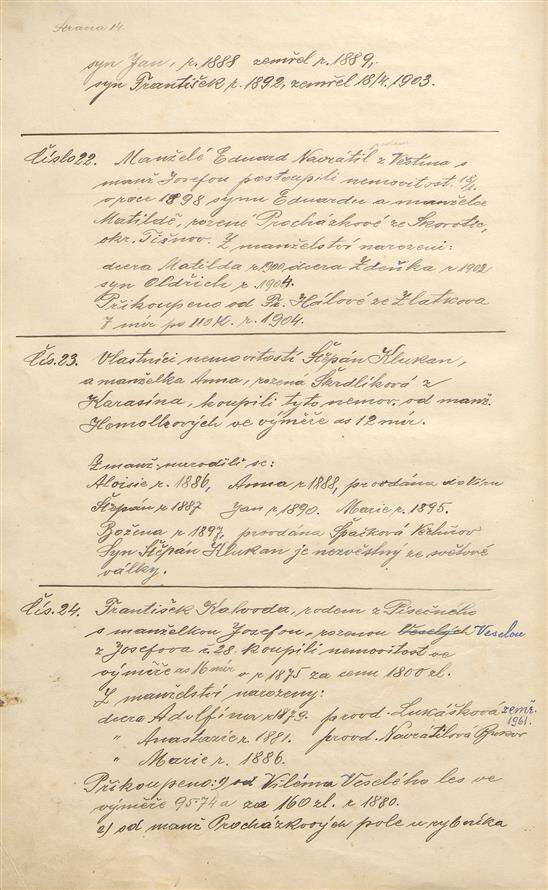 Strana 14.
syn Jan, r. 1888 zemřel r. 1889,
syn František r. 1892, zemřel 18/4. 1903.
Číslo 22. Manželé Eduard Navrátil z Věstína s
manž. Josefou postoupili nemovitost.
v roce 1898 synu Eduardu a manželce
Matildě, rozené Procházkové ze Skorotic,
okr. Tišnov. Z manželství narozeni:
dcera Matilda r. 1900, dcera Zdeňka r. 1902
syn Oldřich r. 1904.
Přikoupeno od Fr. Hálové ze Zlatkova
7 mír po 110 K. r. 1904.
Čís. 23. Vlastníci nemovitostí Štěpán Klukan,
a manželka Anna, rozená Škrdlíková z
Karasína, koupili tyto nemov. od manž.
Homolkových ve výměře as 12 mír.
Z manž. narodili se:
Aloisie r. 1886, Anna r. 1888, provdána
Štěpán r. 1887 Jan r. 1890. Marie r. 1895.
Božena r. 1897, provdána Špačková
Syn Štěpán Klukan je nezvěstný ze světové
války.
Čís. 24. František Kalvoda, rodem z Písečného
s manželkou Josefou, rozenou Veselých Veselou
z Josefova č. 28. koupili nemovitost ve
výměře as 16 mír v r. 1875 za cenu 1800 zl.
Z manželství narozeny:
dcera Adolfína r. 1879. provd. Lukášková zemř. 1961.
" Anastazie r. 1881. provd. Navrátilova Bukov
" Marie r. 1886.
Přikoupeno: 1) od Viléma Veselého les ve
výměře 95·74 a za 160 zl. r. 1880.
2) od manž. Procházkových pole u rybníka